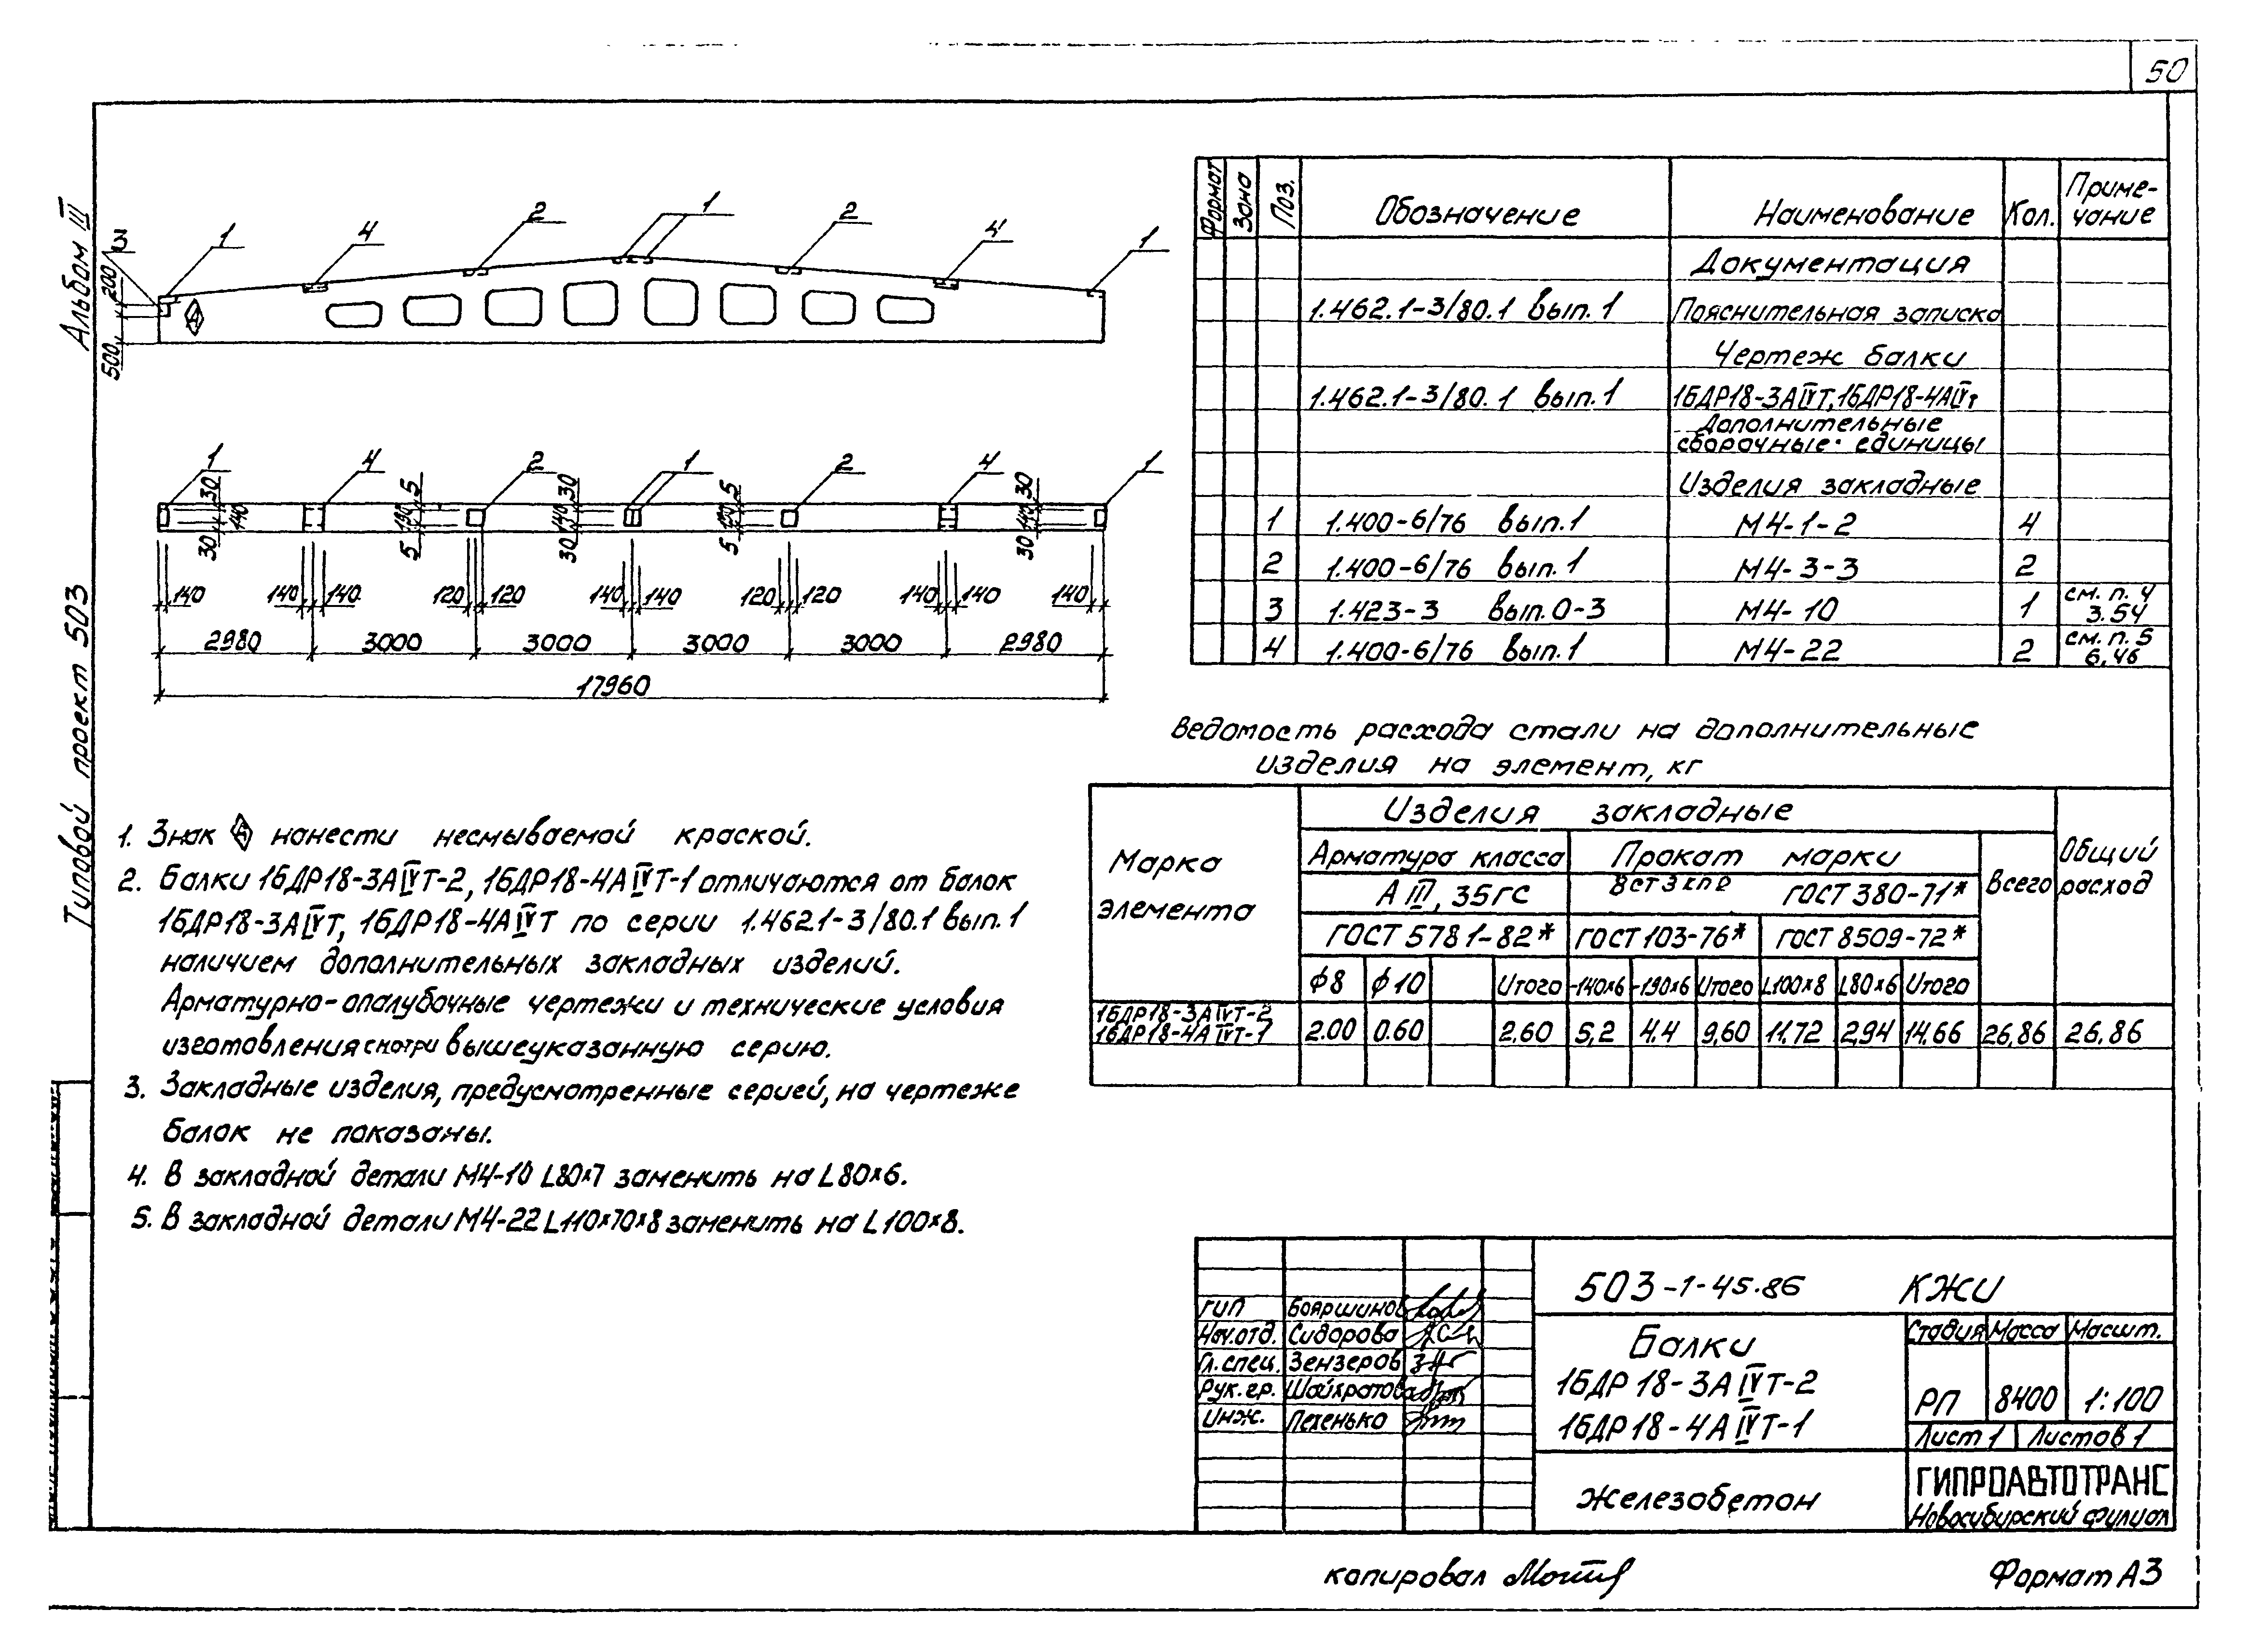 50
Альбом III
Типовой проект 503
3 1 4 2 1 2 4 1
200
500
1 4 2 1 2 4 1
30 140 30 5 190 5 30 140 30 5 190 5 30 140 30
140 140 140 120 120 140 140 120 120 140 140 140
2980 3000 3000 3000 3000 2980
17960
Формат Зона Поз. Обозначение Наименование Кол. Приме-
чание
Документация
1.462.1-3/80.1 вып.1 Пояснительная записка
Чертеж балки
1.462.1-3/80.1 вып.1 1БДР18-3АIVТ, 1БДР18-4АIVт
Дополнительные
сборочные единицы
Изделия закладные
1 1.400-6/76 вып.1 М4-1-2 4
2 1.400-6/76 вып.1 М4-3-3 2
3 1.423-3 вып.0-3 М4-10 1 см. п. 4
3.54
4 1.400-6/76 вып.1 М4-22 2 см. п. 5
6,46
Ведомость расхода стали на дополнительные
изделия на элемент, кг
Марка
элемента
Изделия закладные
Общий
расход
Арматура класса Прокат марки Всего
А III, 35ГС Вст3кп2 ГОСТ 380-71*
ГОСТ 5781-82* ГОСТ 103-76* ГОСТ 8509-72*
ϕ8 ϕ10 Итого -140х6 -190х6 Итого L100х8 L80х6 Итого
1БДР18-3АIVТ-2
1БДР18-4АIVТ-1 2.00 0.60 2,60 5,2 4,4 9,60 11,72 2,94 14,66 26,86 26,86
1. Знак нанести несмываемой краской.
2. Балки 1БДР18-3АIVТ-2, 1БДР18-4АIVТ-1 отличаются от балок
1БДР18-3АIVТ, 1БДР18-4АIVТ по серии 1.462.1-3/80.1 вып.1
наличием дополнительных закладных изделий.
Арматурно-опалубочные чертежи и технические условия
изготовления смотри вышеуказанную серию.
3. Закладные изделия, предусмотренные серией, на чертеже
балок не показаны.
4. В закладной детали М4-10 L80х7 заменить на L80х6.
5. В закладной детали М4-22 L110х70х8 заменить на L100х8.
503-1-45.86 КЖИ
ГИП Бояршинов
Нач.отд. Сидорова
Гл.спец. Зензеров
Рук.гр. Шайхратова
Инж. Пехенько
Балки
1БДР 18-3АIVТ-2
1БДР 18-4АIVТ-1
Стадия Масса Масшт.
РП 8400 1:100
Лист 1 Листов 1
Железобетон
ГИПРОАВТОТРАНС
Новосибирский филиал
копировал
Формат А3